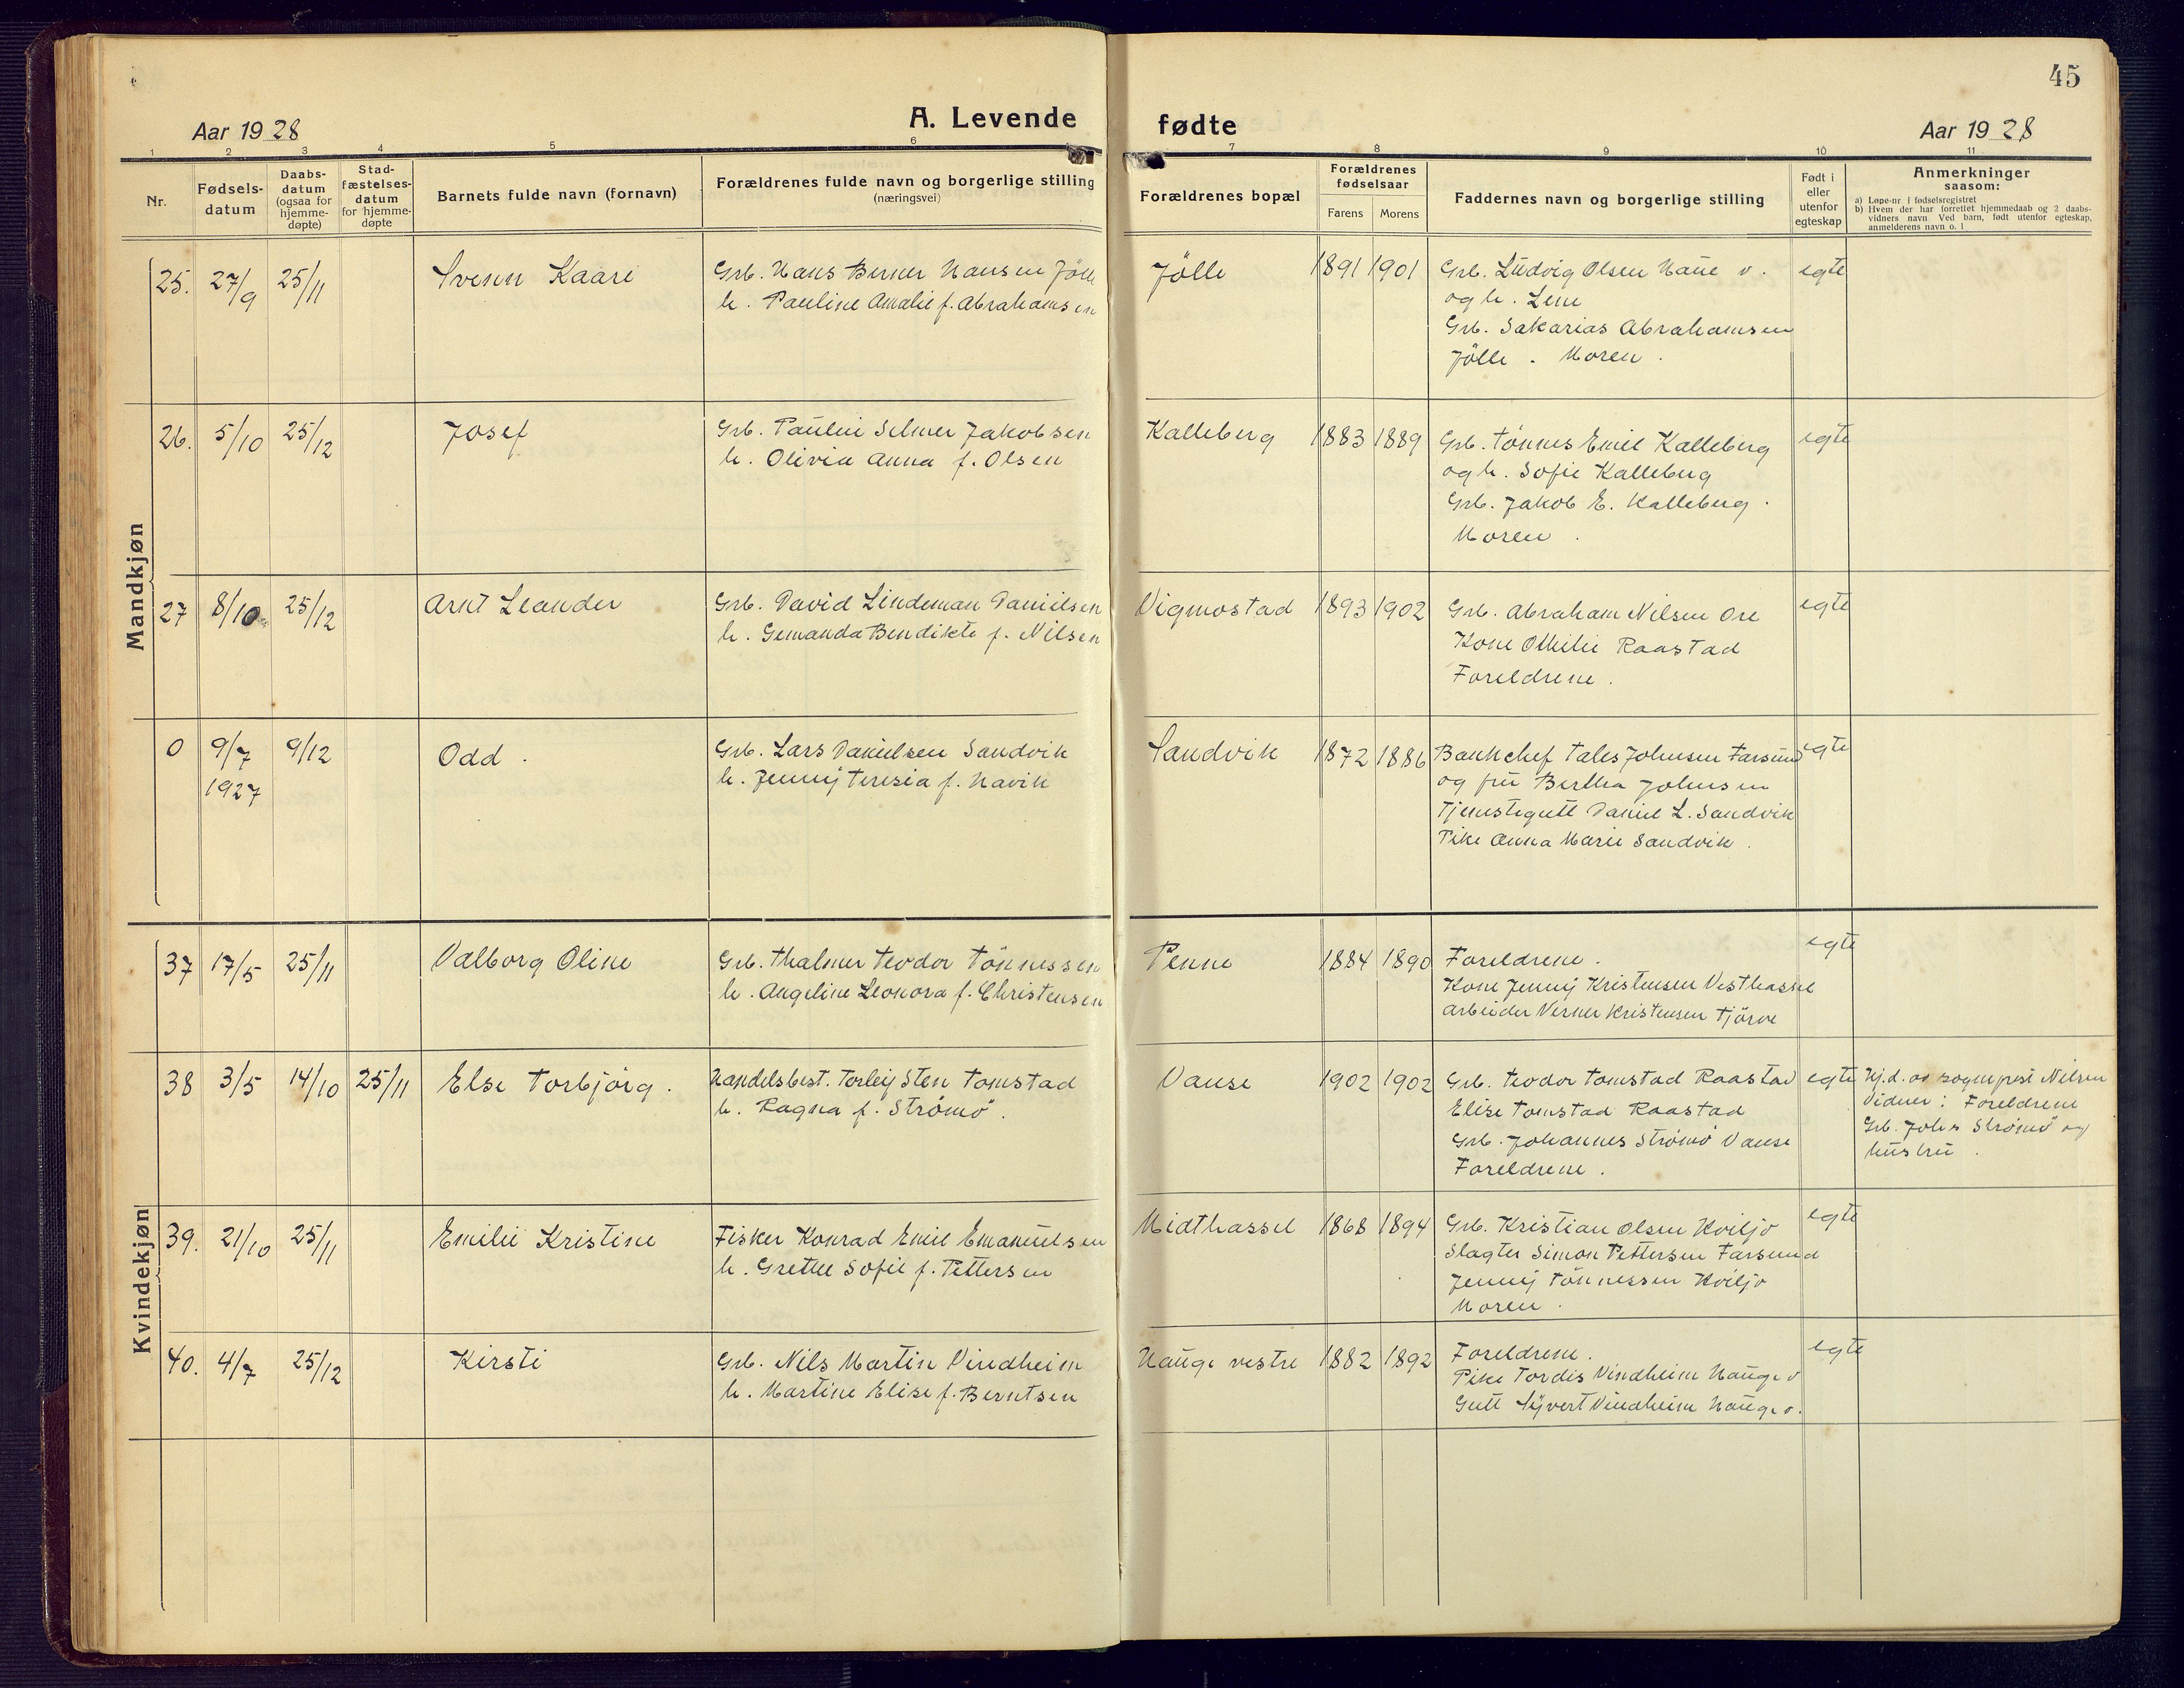 45
Aar 1928
A. Levende fødte
Aar 1928
1 2 3 4 5 6 7 8 9 10 11
Nr.
Fødsels-
datum
Daabs-
datum
(ogsaa for
hjemme-
døpte)
Stad-
fæstelses-
datum
for hjemme-
døpte
Barnets fulde navn (fornavn)
Forældrenes fulde navn og borgerlige stilling
(næringsvei)
Forældrenes bopæl
Forældrenes
fødselsaar
Farens Morens
Faddernes navn og borgerlige stilling
Født i
eller
utenfor
egteskap
Anmerkninger
saasom:
a) Løpe-nr i fødselsregistret
b) Hvem der har forrettet hjemmedaab og 2 daabs-
vidners navn Ved barn, født utenfor egteskap,
anmelderens navn o. l
Mandkjøn
25. 27/9 25/11 Svenn Kaare
Grb. Hans Berner Hansen Jölle
h. Pauline Amalie f. Abrahamsen
Jölle 1891 1901
Grb. Ludvig Olsen Haue v.
og h. Lene
Grb. Sakarias Abrahamsen
Jölle. Moren.
egte
26. 5/10 25/12 Josef
Grb. Paulin Selmer Jakobsen
h. Olivia Anna f. Olsen
Kalleberg 1883 1889
Grb. Tönnes Emil Kalleberg
og h. Sofie Kalleberg
Grb. Jakob E. Kalleberg.
Moren.
egte
27 8/10 25/12 Arnt Leander
Grb. David Lindeman Danielsen
h. Gemanda Bendikte f. Nilsen
Vigmostad 1893 1902
Grb. Abraham Nilsen Ore
Kone Othilie Raastad
Foreldrene.
egte
0 9/7 9/12 Odd.
1927
Grb. Lars Danielsen Sandvik
h. Jenny Teresia f. Navik
Sandvik 1872 1886
Bankchef Tales Johnsen Farsund
og fru Bertha Johnsen
Tjenestegutt Daniel L. Sandvik
Pike Anna Marie Sandvik.
egte
Kvindekjøn
37 17/5 25/11 Valborg Oline
Grb. Thalmer Teodor Tönnessen
h. Angeline Leonora f. Christensen
Penne 1884 1890
Foreldrene.
Kone Jenny Kristensen Vesthassel
Arbeider Verner Kristensen Tjörve
egte
38 3/5 14/10 25/11 Else Torbjörg.
Handelsbest. Torleij Sten Tomstad
h. Ragna f. Strömö.
Vanse 1902 1902
Grb. Teodor Tomstad Raastad
Elise Tomstad Raastad
Grb. Johannes Strömö Vanse
Foreldrene.
egte
Hj.d. av sognepest Nilsen
Vidner: Foreldrene
Grb. Johs Strömö og
hustru.
39. 21/10 25/11 Emilie Kristine
Fisker Konrad Emil Emanuelsen
h. Grethe Sofie f. Pettersen
Midthassel 1868 1894
Grb. Kristian Olsen Kviljo
Slagter Simon Pettersen Farsund
Jenny Tönnessen Kviljo
Moren.
egte
40. 4/7 25/12 Kirsti
Grb. Nils Martin Vindheim
h. Martine Elise f. Berntsen
Hauge vestre 1882 1892
Foreldrene.
Pike Tordis Vindheim Hauge v
Gutt Syvert Vindheim Hauge v.
egte